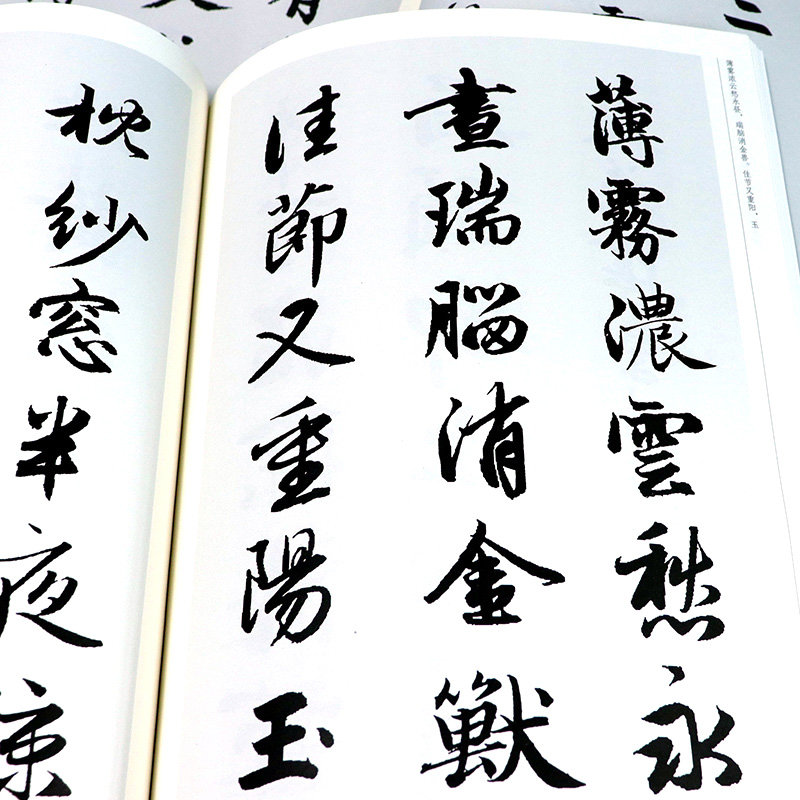 薄雾浓云愁永昼，瑞脑消金兽。佳节又重阳，玉
薄霧濃雲愁永
晝瑞腦消金獸
佳節又重陽玉
枕紗窓半夜涼